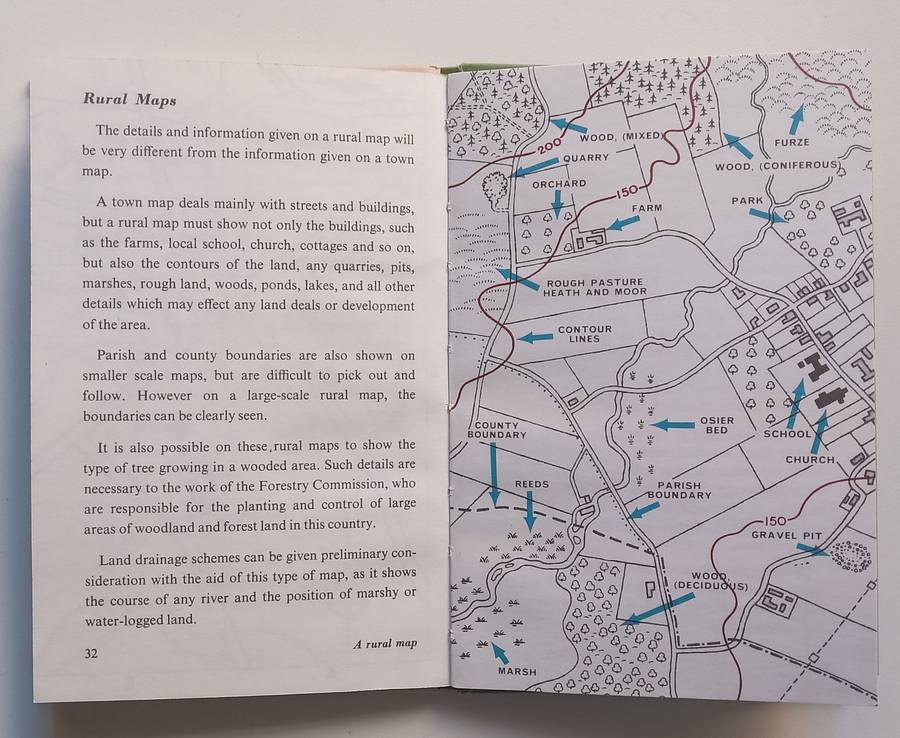 Rural Maps
The details and information given on a rural map will
be very different from the information given on a town
map.
A town map deals mainly with streets and buildings,
but a rural map must show not only the buildings, such
as the farms, local school, church, cottages and so on,
but also the contours of the land, any quarries, pits,
marshes, rough land, woods, ponds, lakes, and all other
details which may effect any land deals or development
of the area.
Parish and county boundaries are also shown on
smaller scale maps, but are difficult to pick out and
follow. However on a large-scale rural map, the
boundaries can be clearly seen.
It is also possible on these rural maps to show the
type of tree growing in a wooded area. Such details are
necessary to the work of the Forestry Commission, who
are responsible for the planting and control of large
areas of woodland and forest land in this country.
Land drainage schemes can be given preliminary con-
sideration with the aid of this type of map, as it shows
the course of any river and the position of marshy or
water-logged land.
A rural map
32
WOOD, (MIXED)
200
QUARRY
FURZE
WOOD, (CONIFEROUS)
ORCHARD
150
FARM
PARK
ROUGH PASTURE
HEATH AND MOOR
CONTOUR
LINES
COUNTY
BOUNDARY
OSIER
BED
SCHOOL
CHURCH
REEDS
PARISH
BOUNDARY
150
GRAVEL PIT
WOOD,
(DECIDUOUS)
MARSH